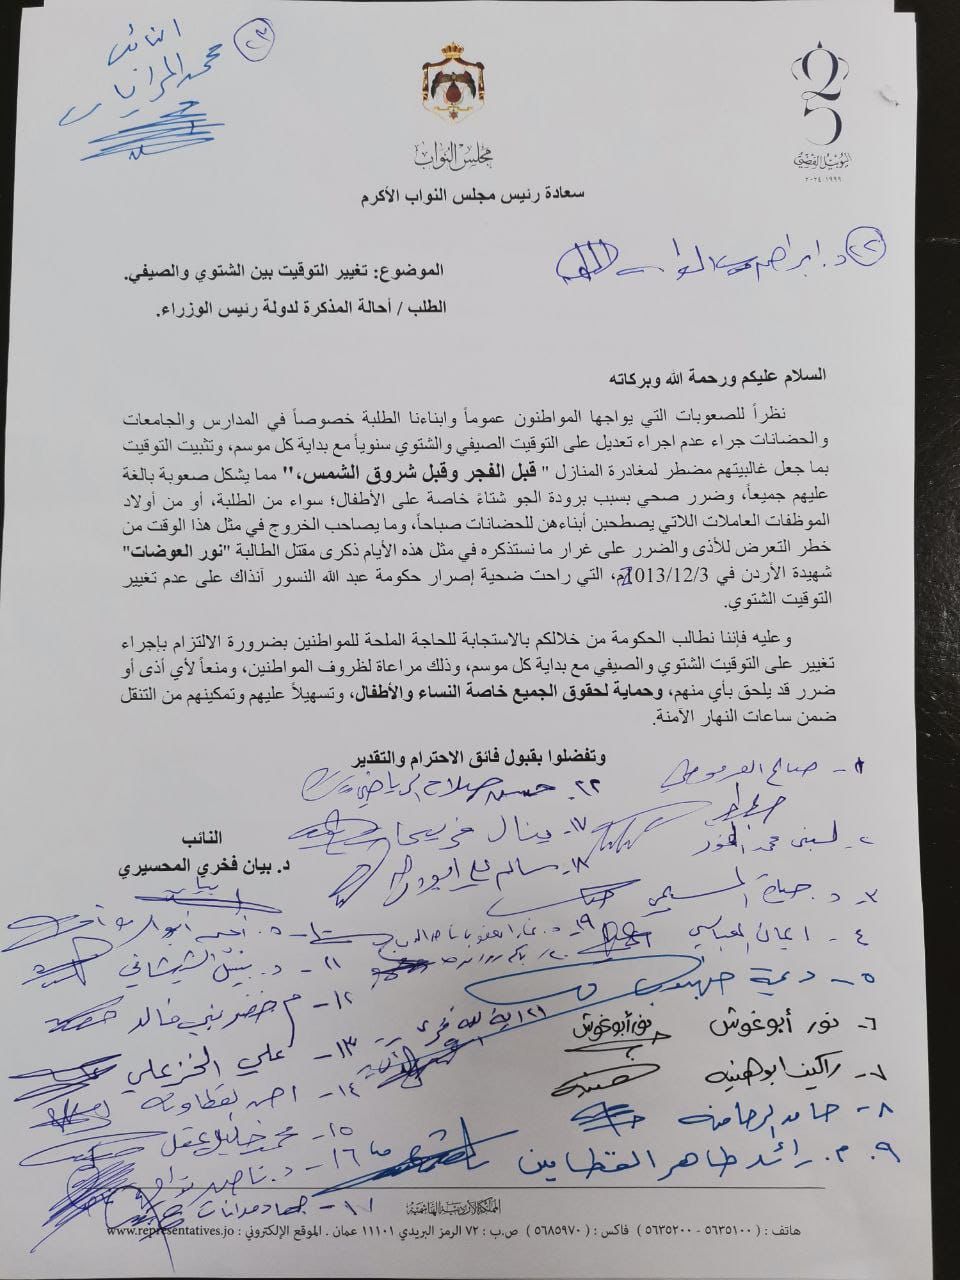 النائب
محمد المرايات
٢٣
مجلس النواب
اليوبيل الفضي
١٩٩٩ ٢٠٢٤
سعادة رئيس مجلس النواب الأكرم
٢٢ د. ابراهيم
الموضوع: تغيير التوقيت بين الشتوي والصيفي.
الطلب / أحالة المذكرة لدولة رئيس الوزراء.
السلام عليكم ورحمة الله وبركاته
نظراً للصعوبات التي يواجها المواطنون عموماً وابناءنا الطلبة خصوصاً في المدارس والجامعات
والحضانات جراء عدم اجراء تعديل على التوقيت الصيفي والشتوي سنوياً مع بداية كل موسم، وتثبيت التوقيت
بما جعل غالبيتهم مضطر لمغادرة المنازل " قبل الفجر وقبل شروق الشمس،" مما يشكل صعوبة بالغة
عليهم جميعاً، وضرر صحي بسبب برودة الجو شتاءً خاصة على الأطفال؛ سواء من الطلبة، أو من أولاد
الموظفات العاملات اللاتي يصطحبن أبناءهن للحضانات صباحاً، وما يصاحب الخروج في مثل هذا الوقت من
خطر التعرض للأذى والضرر على غرار ما نستذكره في مثل هذه الأيام ذكرى مقتل الطالبة "نور العوضات"
شهيدة الأردن في 2013/12/3م، التي راحت ضحية إصرار حكومة عبد الله النسور آنذاك على عدم تغيير
التوقيت الشتوي.
وعليه فإننا نطالب الحكومة من خلالكم بالاستجابة للحاجة الملحة للمواطنين بضرورة الالتزام بإجراء
تغيير على التوقيت الشتوي والصيفي مع بداية كل موسم، وذلك مراعاة لظروف المواطنين، ومنعاً لأي أذى أو
ضرر قد يلحق بأي منهم، وحماية لحقوق الجميع خاصة النساء والأطفال، وتسهيلاً عليهم وتمكينهم من التنقل
ضمن ساعات النهار الآمنة.
وتفضلوا بقبول فائق الاحترام والتقدير
النائب
د. بيان فخري المحسيري
بيان
١- صالح العرموطي
٢- لبنى محمد النمور
٣- د. حياة المسيمي
٤- ايمان العباسي
٥- ديمة طهبوب
٦- نور أبوغوش
نور أبوغوش
٧- راكين ابو هنيه
٨- حامد الرحامنه
٩. م. رائد طاهر القطامين
١٠- جهاد مدانات
١١- د. نبيل الشيشاني
١٢- م خضر بني خالد
١٣- علي الخزعلي
١٤- احمد القطاونه
١٥- محمد خليل عقل
١٦- د. ناصر نواصره
١٧- ينال فريحات
١٨- سالم
١٩- د.
٢٢- حسين
المملكة الأردنية الهاشمية
هاتف : ( ٥٦٣٥١٠٠ - ٥٦٣٥٢٠٠ ) فاكس : ( ٥٦٨٥٩٧٠ ) ص.ب : ٧٢ الرمز البريدي ١١١٠١ عمان . الموقع الإلكتروني : www.representatives.jo